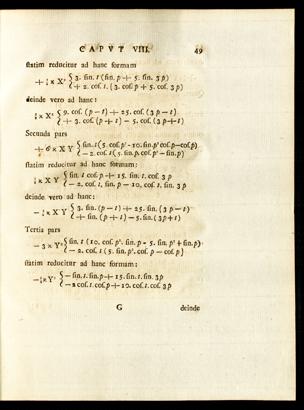 CAPVT VIII. 49
statim reducitur ad hanc formam
+ ¼ x X² { 3. sin. t (sin. p + 5. sin. 3 p)
+ 2. cos. t. (3. cos. p + 5. cos. 3 p)
deinde vero ad hanc:
¼ x X² { 9. cos. (p - t) + 25. cos. (3 p - t)
+ 3. cos. (p + t) - 5. cos. (3 p + t)
Secunda pars
+ 6 x X Y { sin. t (5. cos. p³ - 10. sin. p² cos. p - cos. p)
- 2. cos. t (5. sin. p. cos. p² - sin. p)
statim reducitur ad hanc formam:
x X Y { sin. t cos. p + 15. sin. t. cos. 3 p
- 2. cos. t. sin. p - 10. cos. t. sin. 3 p
deinde vero ad hanc:
x X Y { 3. sin. (p - t) + 25. sin. (3 p - t)
+ sin. (p + t) - 5. sin. (3 p + t)
Tertia pars
- 3 x Y² { sin. t (10. cos. p². sin. p - 5. sin. p³ + sin. p)
- 2. cos. t (5. sin. p². cos. p - cos. p)
statim reducitur ad hanc formam:
x Y² { - sin. t. sin. p + 15. sin. t. sin. 3 p
- 2 cos. t. cos. p + 10. cos. t. cos. 3 p
G deinde